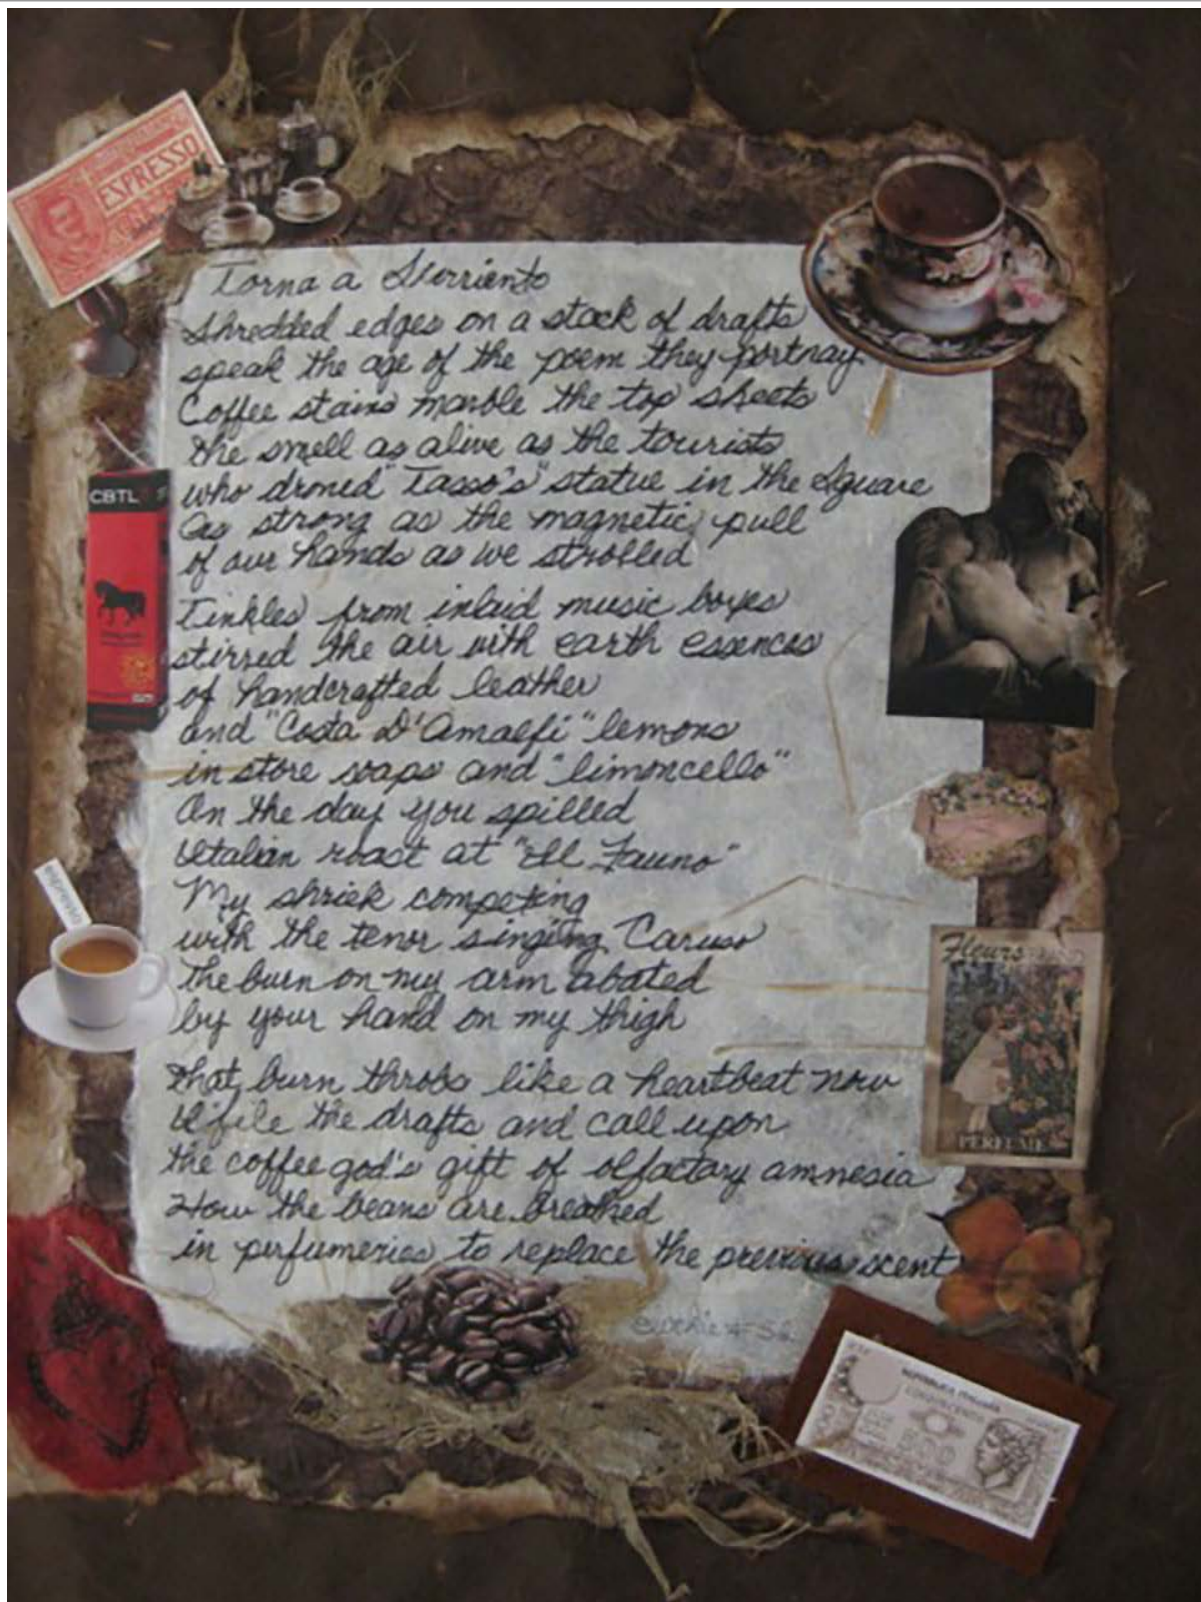 ESPRESSO
Torna a Surriento
Shredded edges on a stack of drafts
speak the age of the poem they portray
Coffee stains marble the top sheets
the smell as alive as the tourists
who droned "Tasso's" statue in the Square
as strong as the magnetic pull
of our hands as we strolled
CBTL
Tinkles from inlaid music boxes
stirred the air with earth essences
of handcrafted leather
and "Costa D'Amalfi" lemons
in store soaps and "limoncello"
On the day you spilled
Italian roast at "Il Fauno"
My shriek competing
with the tenor singing Caruso
the burn on my arm abated
by your hand on my thigh
Fleurs
PERFUME
that burn throbs like a heartbeat now
I file the drafts and call upon
the coffee god's gift of olfactory amnesia
How the beans are breathed
in perfumeries to replace the previous scent
REPUBBLICA ITALIANA
500